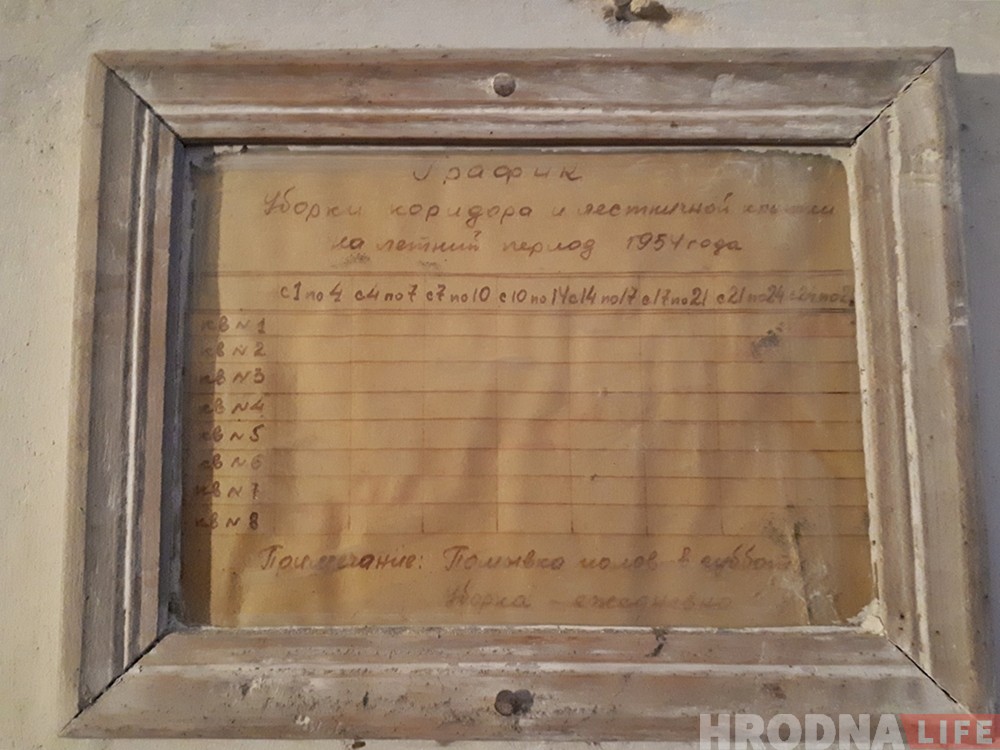 График
Уборки коридора и лестничной клетки
на летний период 1954 года
с 1 по 4 с 4 по 7 с 7 по 10 с 10 по 14 с 14 по 17 с 17 по 21 с 21 по 24
кв N 1
кв N 2
кв N 3
кв N 4
кв N 5
кв N 6
кв N 7
кв N 8
Примечание: Помывка полов в субботу
Уборка - ежедневно
HRODNA LIFE